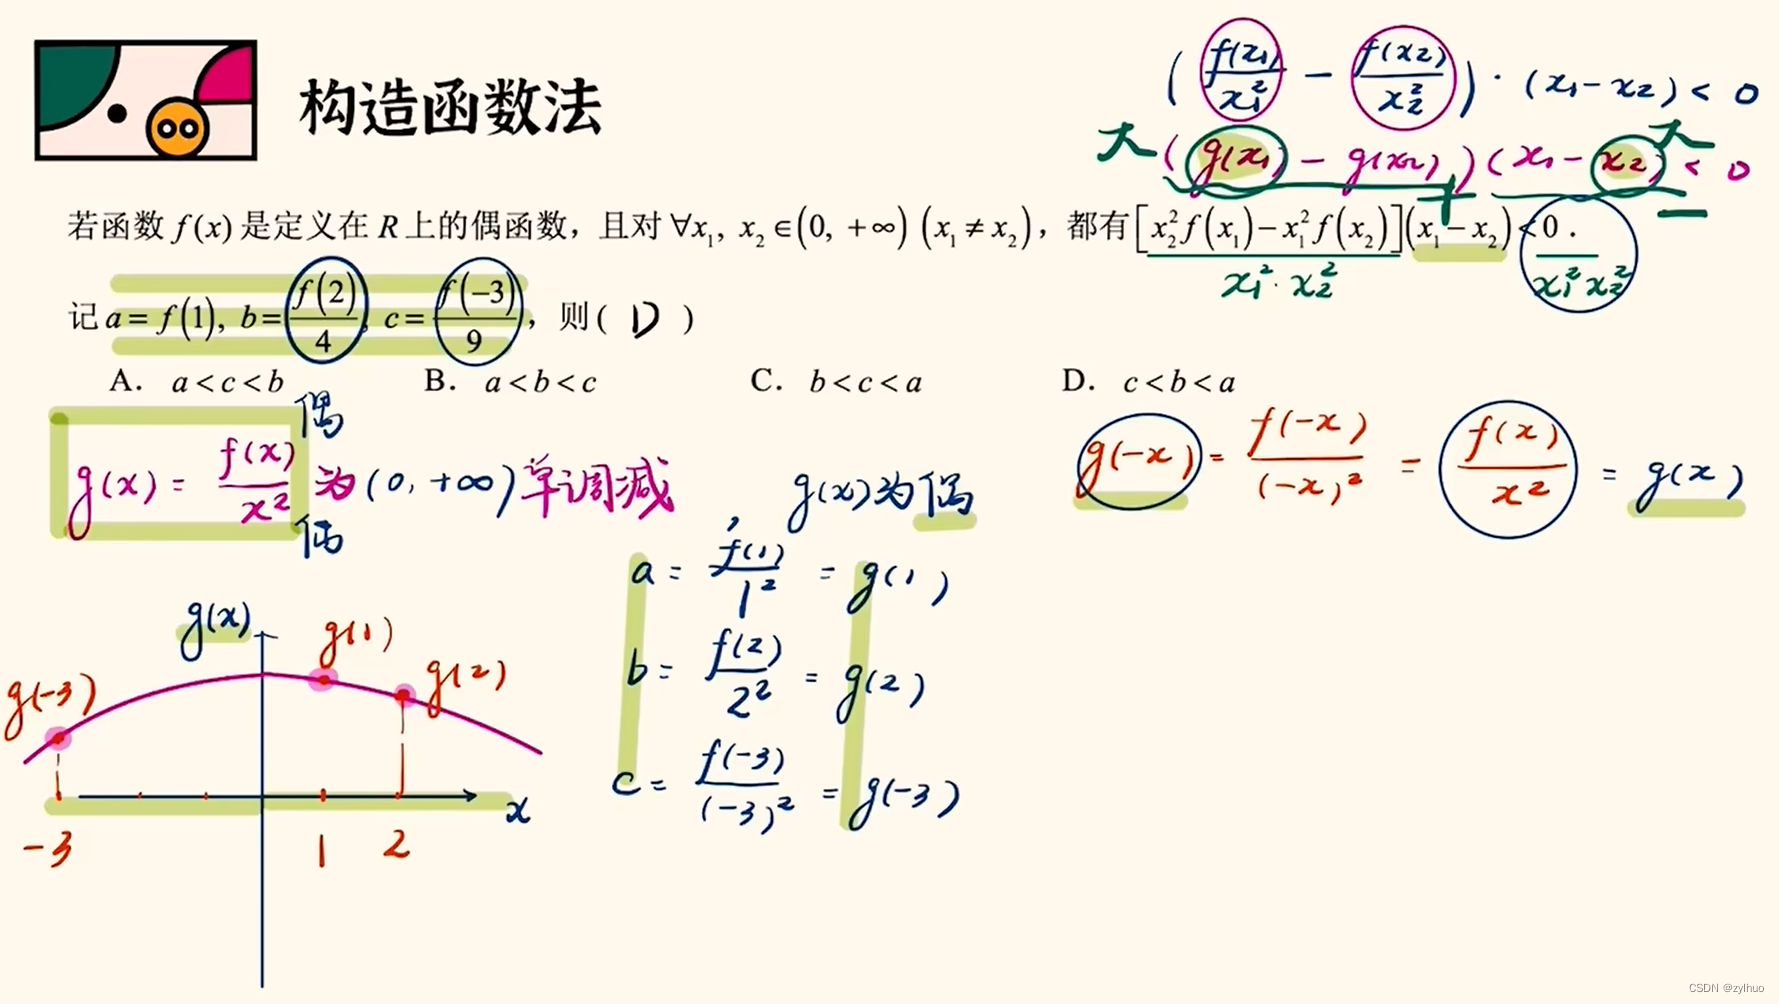 构造函数法
(f(x₁)/x₁² − f(x₂)/x₂²)·(x₁−x₂)<0
大 (g(x₁)−g(x₂))(x₁−x₂)<0 大
+ −
若函数 f(x) 是定义在 R 上的偶函数，且对 ∀x₁, x₂∈(0, +∞) (x₁≠x₂)，都有[x₂²f(x₁)−x₁²f(x₂)](x₁−x₂)<0．
x₁²·x₂² x₁²x₂²
记 a=f(1), b=f(2)/4, c=f(−3)/9，则( D )
A． a<c<b B． a<b<c C． b<c<a D． c<b<a
偶
g(x)=f(x)/x² 为(0,+∞)单调减, g(x)为偶
偶
g(−x)=f(−x)/(−x)²=f(x)/x²=g(x)
a=f(1)/1²=g(1)
b=f(2)/2²=g(2)
c=f(−3)/(−3)²=g(−3)
g(x)
g(1)
g(2)
g(−3)
x
−3 1 2
CSDN @zylhuo